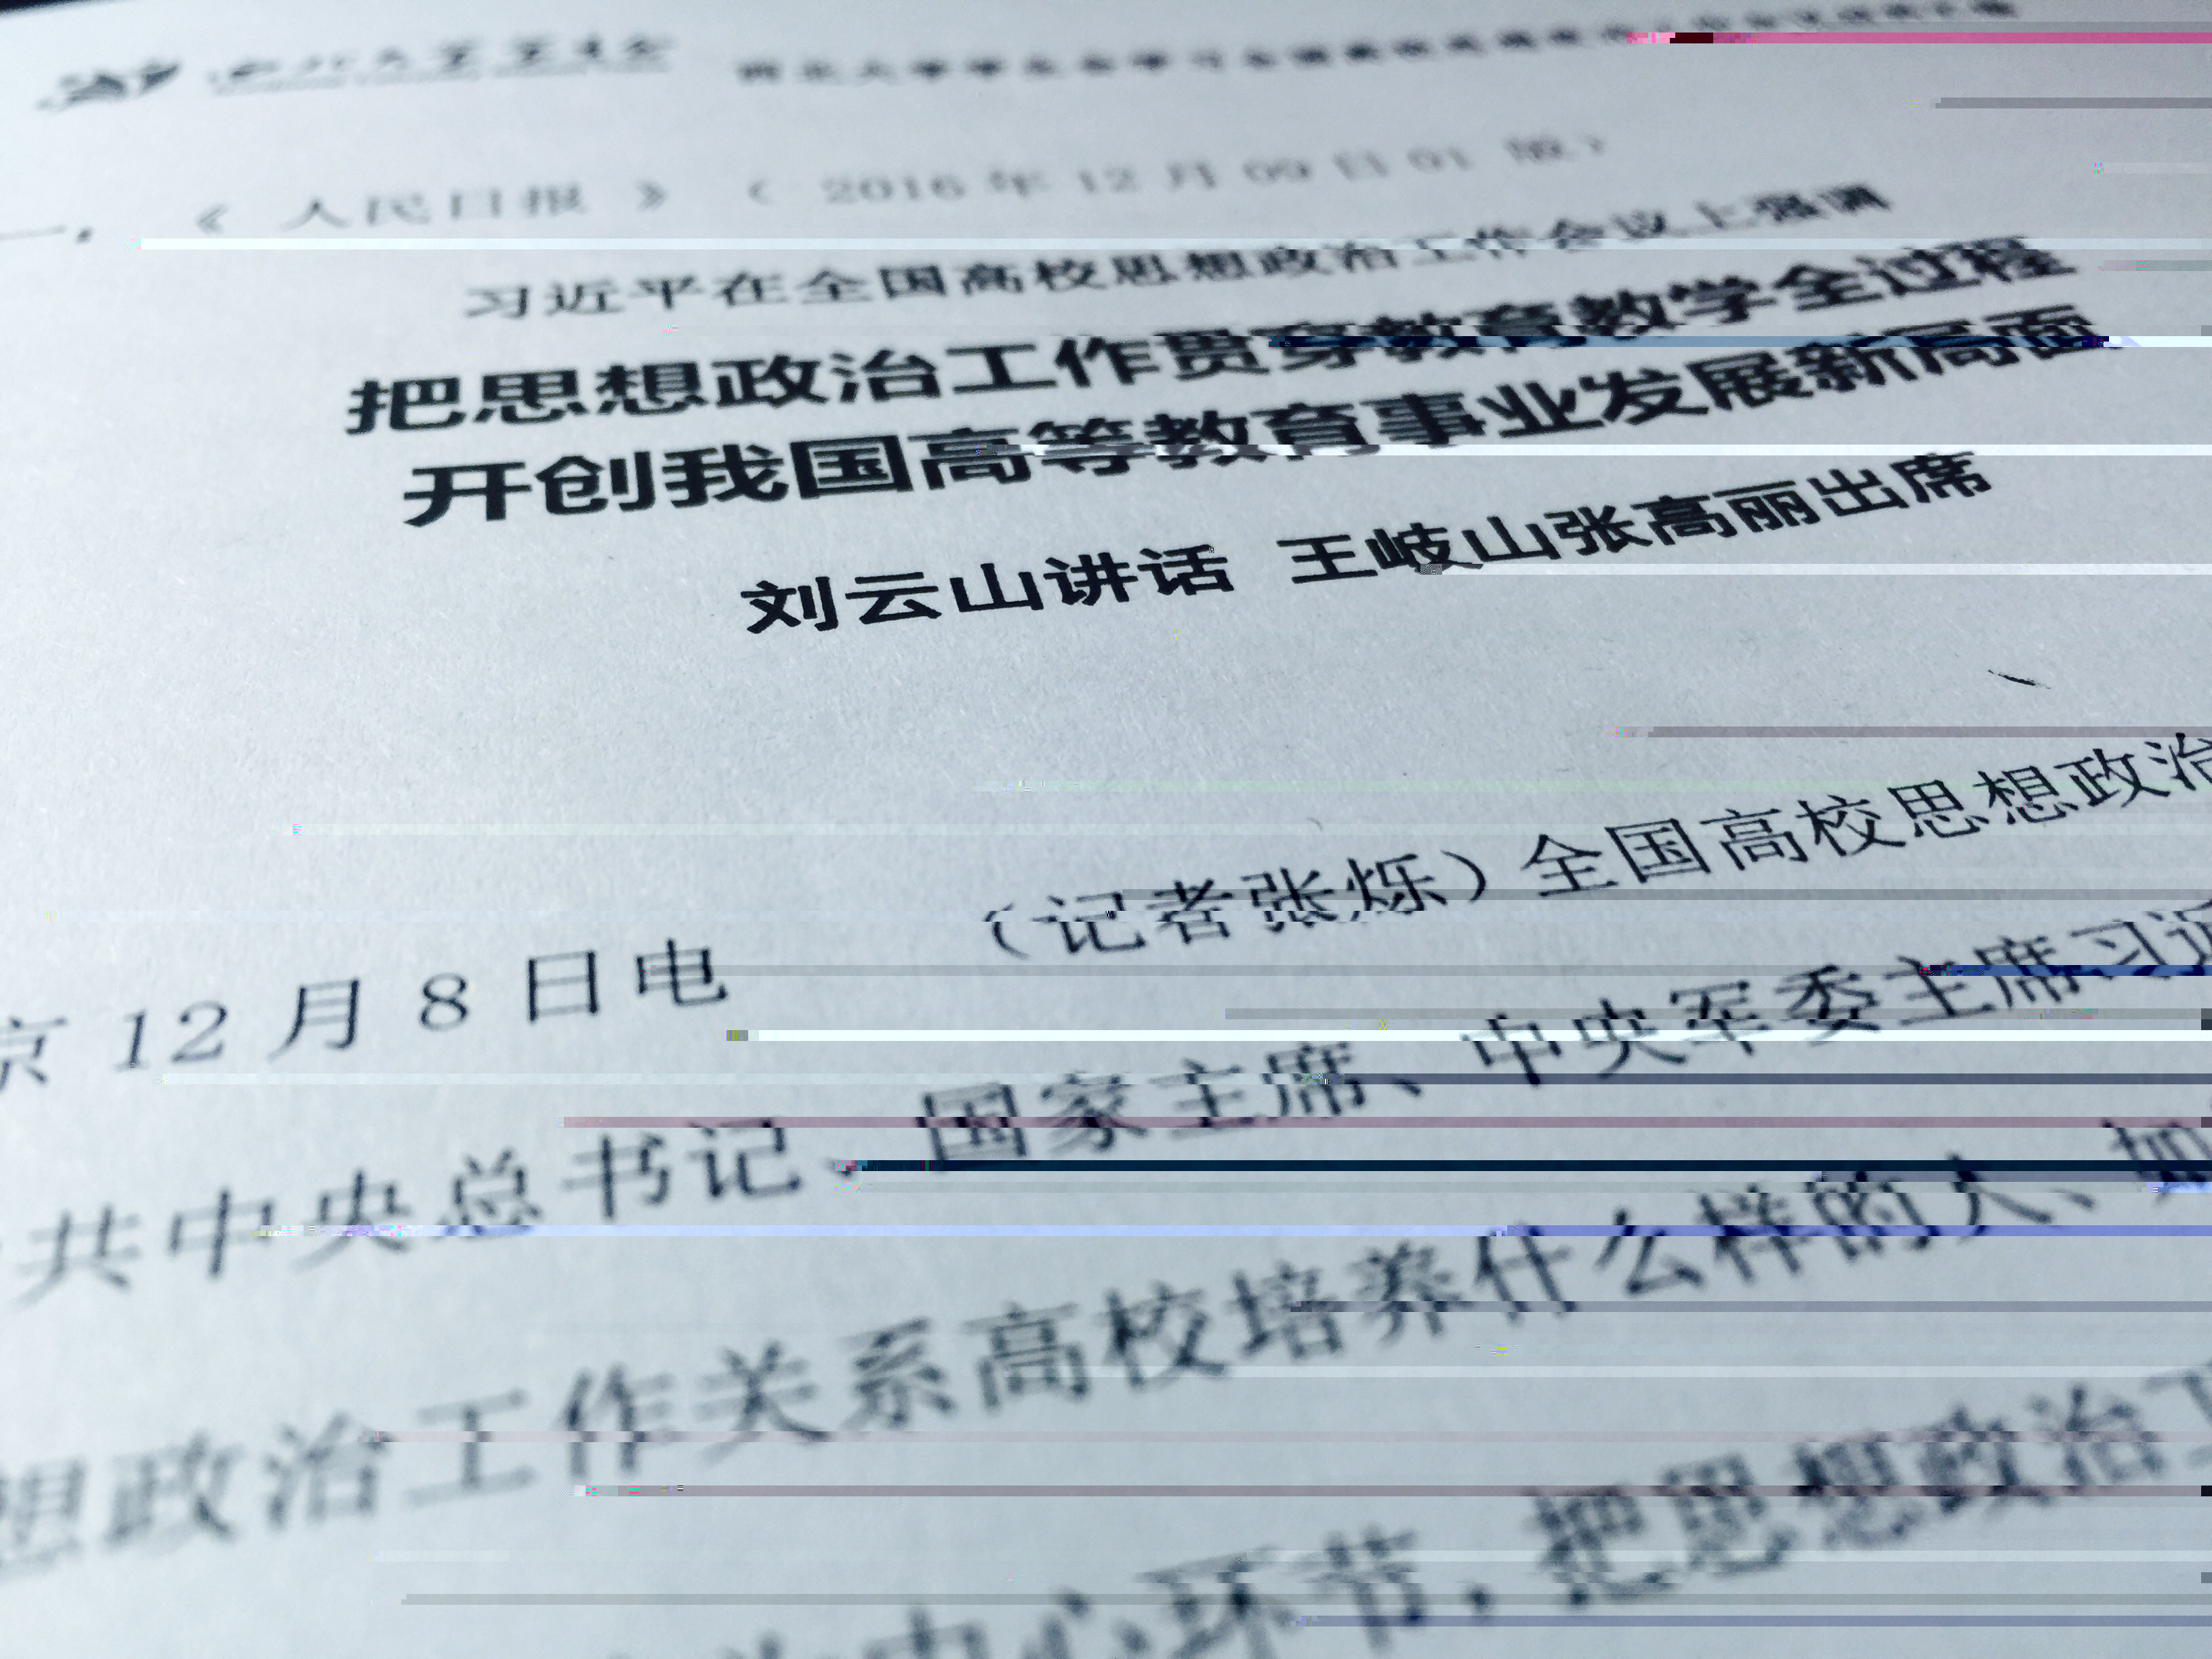 一、 《 人民日报 》 （ 2016 年 12 月 09 日 01 版）
习近平在全国高校思想政治工作会议上强调
把思想政治工作贯穿教育教学全过程
开创我国高等教育事业发展新局面
刘云山讲话 王岐山张高丽出席
京 12 月 8 日电 （记者张烁）全国高校思想政治
共中央总书记、国家主席、中央军委主席习近
想政治工作关系高校培养什么样的人、如
中心环节，把思想政治工